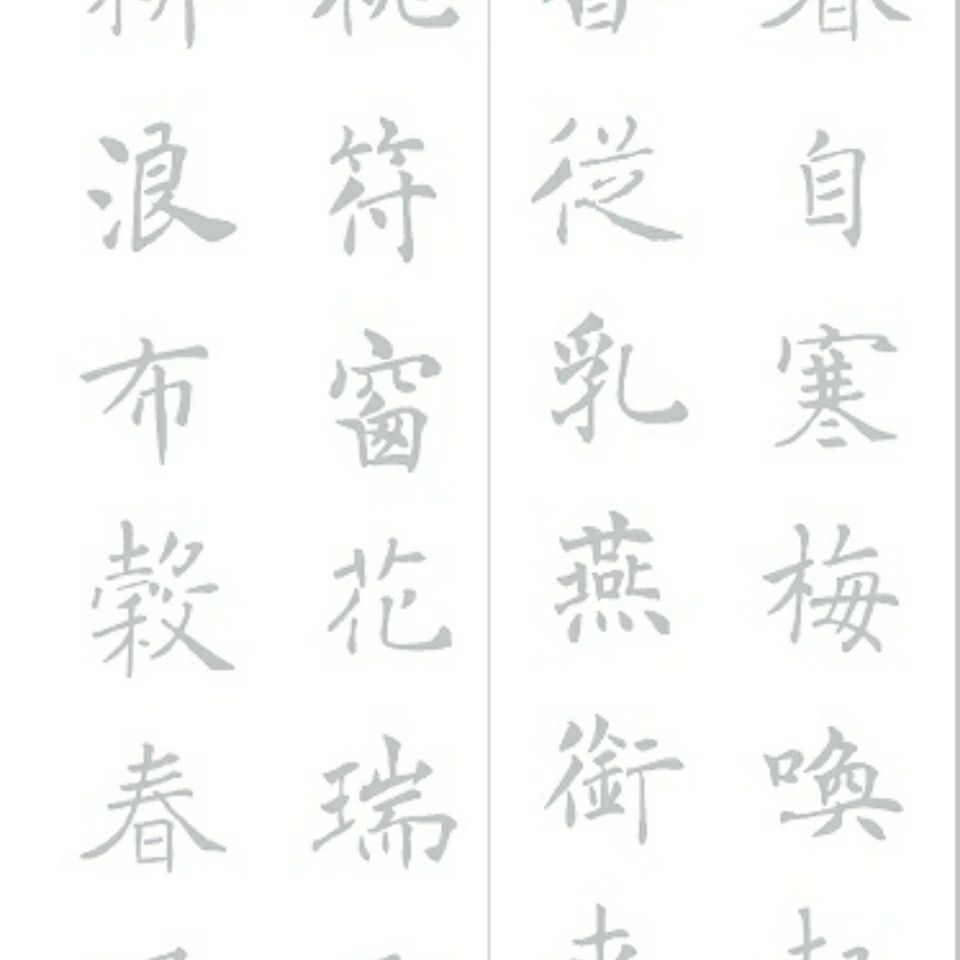 春自寒梅喚
從乳燕銜
符窗花瑞
浪布穀春